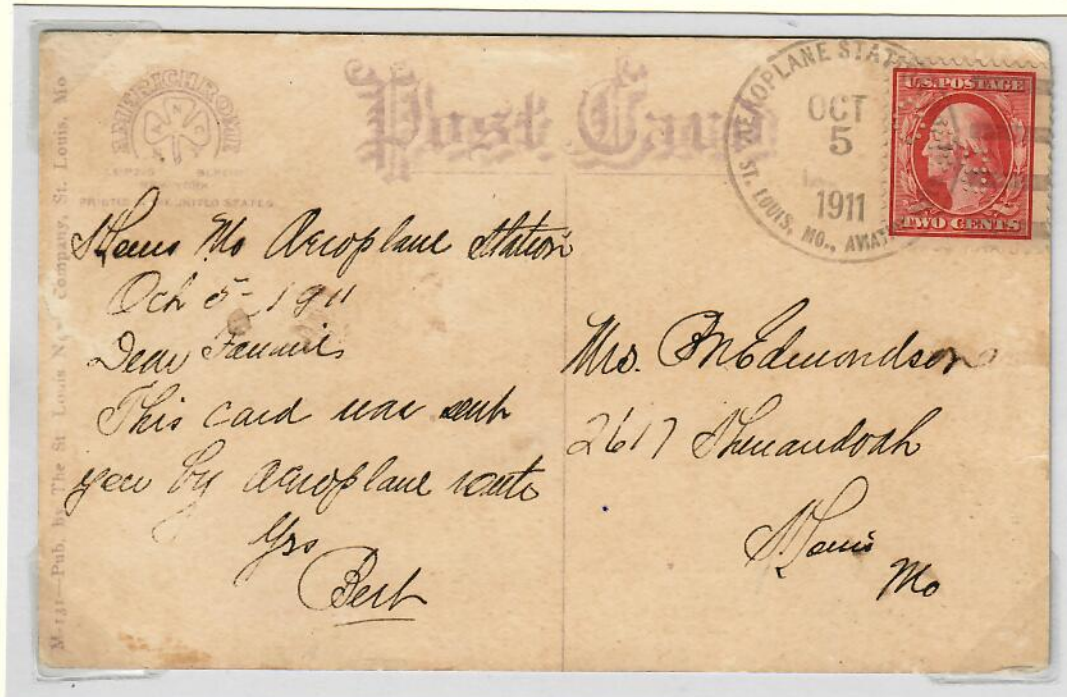 M-131—Pub. by The St Louis N Company, St. Louis, Mo
AMERICHROM
LEIPZIG BERLIN
PRINTED IN THE UNITED STATES
Post Card
AEROPLANE STAT
OCT
5
1911
ST. LOUIS, MO., AVIAT
U.S. POSTAGE
TWO CENTS
St Louis Mo Aeroplane Station
Oct 5- 1911
Dear Fannie
This card was sent
you by aeroplane route
Yrs
Bert
Mrs. BM Edmondson
2617 Shenandoah
St Louis
Mo